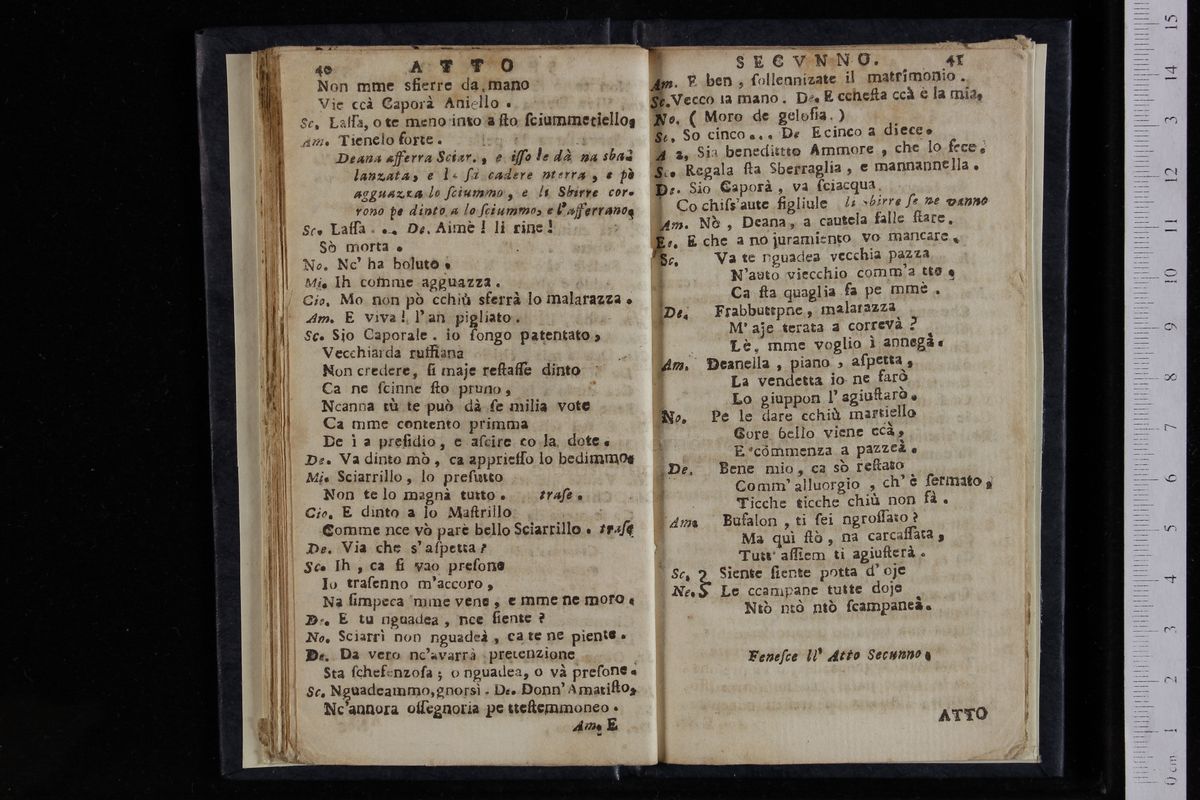 40 ATTO
Non mme sfierre da mano
Vie ccà Caporà Aniello.
Sc. Lassa, o te meno into a sto sciummetiello,
Am. Tienelo forte.
Deana afferra Sciar., e isso le dà na sba-
lanzata, e lo fa cadere nterra, e pò
agguazza lo sciummo, e li Sbirre cor-
rono pe dinto a lo sciummo, e l'afferrano.
Sc. Lassa... De. Aimè! li rine!
Sò morta.
No. Nc' ha boluto.
Mi. Ih comme agguazza.
Cio. Mo non pò cchiù sferrà lo malarazza.
Am. E viva! l'an pigliato.
Sc. Sio Caporale. io songo patentato,
Vecchiarda ruffiana
Non credere, si maje restasse dinto
Ca ne scinne sto pruno,
Ncanna tù te può dà se milia vote
Ca mme contento primma
De ì a presidio, e ascire co la dote.
De. Va dinto mò, ca apprieffo lo bedimmo.
Mi. Sciarrillo, lo presutto
Non te lo magnà tutto. trase.
Cio. E dinto a lo Mastrillo
Comme nce vò parè bello Sciarrillo. trase
De. Via che s'aspetta?
Sc. Ih, ca si vao presone
Io trasenno m'accoro,
Na simpeca mme vene, e mme ne moro.
De. E tu nguadea, nce siente?
No. Sciarrì non nguadeà, ca te ne piente.
De. Da vero nc'avarrà pretenzione
Sta schefenzosa; o nguadea, o và presone.
Sc. Nguadeammo, gnorsì. De. Donn' Amatisto,
Nc'annora ossegnoria pe ttestemmoneo.
Am. E
SECVNNO. 41
Am. E ben, sollennizate il matrimonio.
Sc. Vecco la mano. De. E cchesta ccà è la mia,
No. (Moro de gelosia.)
Sc. So cinco... De E cinco a diece.
A 2, Sia benedittto Ammore, che lo fece.
Sc. Regala sta Sberraglia, e mannannella.
De. Sio Caporà, va sciacqua
Co chiss'aute figliule li sbirre se ne vanno
Am. Nò, Deana, a cautela falle stare.
De. E che a no juramiento vo mancare.
Sc. Va te nguadea vecchia pazza
N'auto viecchio comm'a tte,
Ca sta quaglia fa pe mmè.
De. Frabbuttpne, malarazza
M'aje terata a correvà?
Lè, mme voglio ì annegà.
Am. Deanella, piano, aspetta,
La vendetta io ne farò
Lo giuppon l'agiustarò.
No. Pe le dare cchiù martiello
Core bello viene ccà,
E commenza a pazzeà.
De. Bene mio, ca sò restato
Comm' alluorgio, ch'è fermato,
Ticche ticche chiù non fà.
Am. Bufalon, ti sei ngrossato?
Ma qui stò, na carcassata,
Tutt' assiem ti agiusterà.
Sc. Siente siente potta d'oje
Ne. Le ccampane tutte doje
Ntò ntò ntò scampaneà.
Fenesce ll' Atto Secunno.
ATTO
0 cm 1 2 3 4 5 6 7 8 9 10 11 12 13 14 15